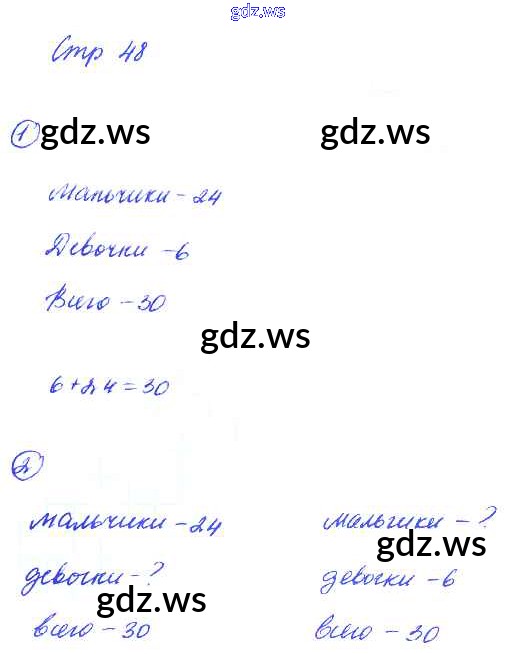 gdz.ws
Стр 48
1 gdz.ws gdz.ws
Мальчики - 24
Девочки - 6
Всего - 30
gdz.ws
6 + 24 = 30
2
мальчики - 24 мальчики - ?
gdz.ws
девочки - ? девочки - 6
gdz.ws
всего - 30 всего - 30